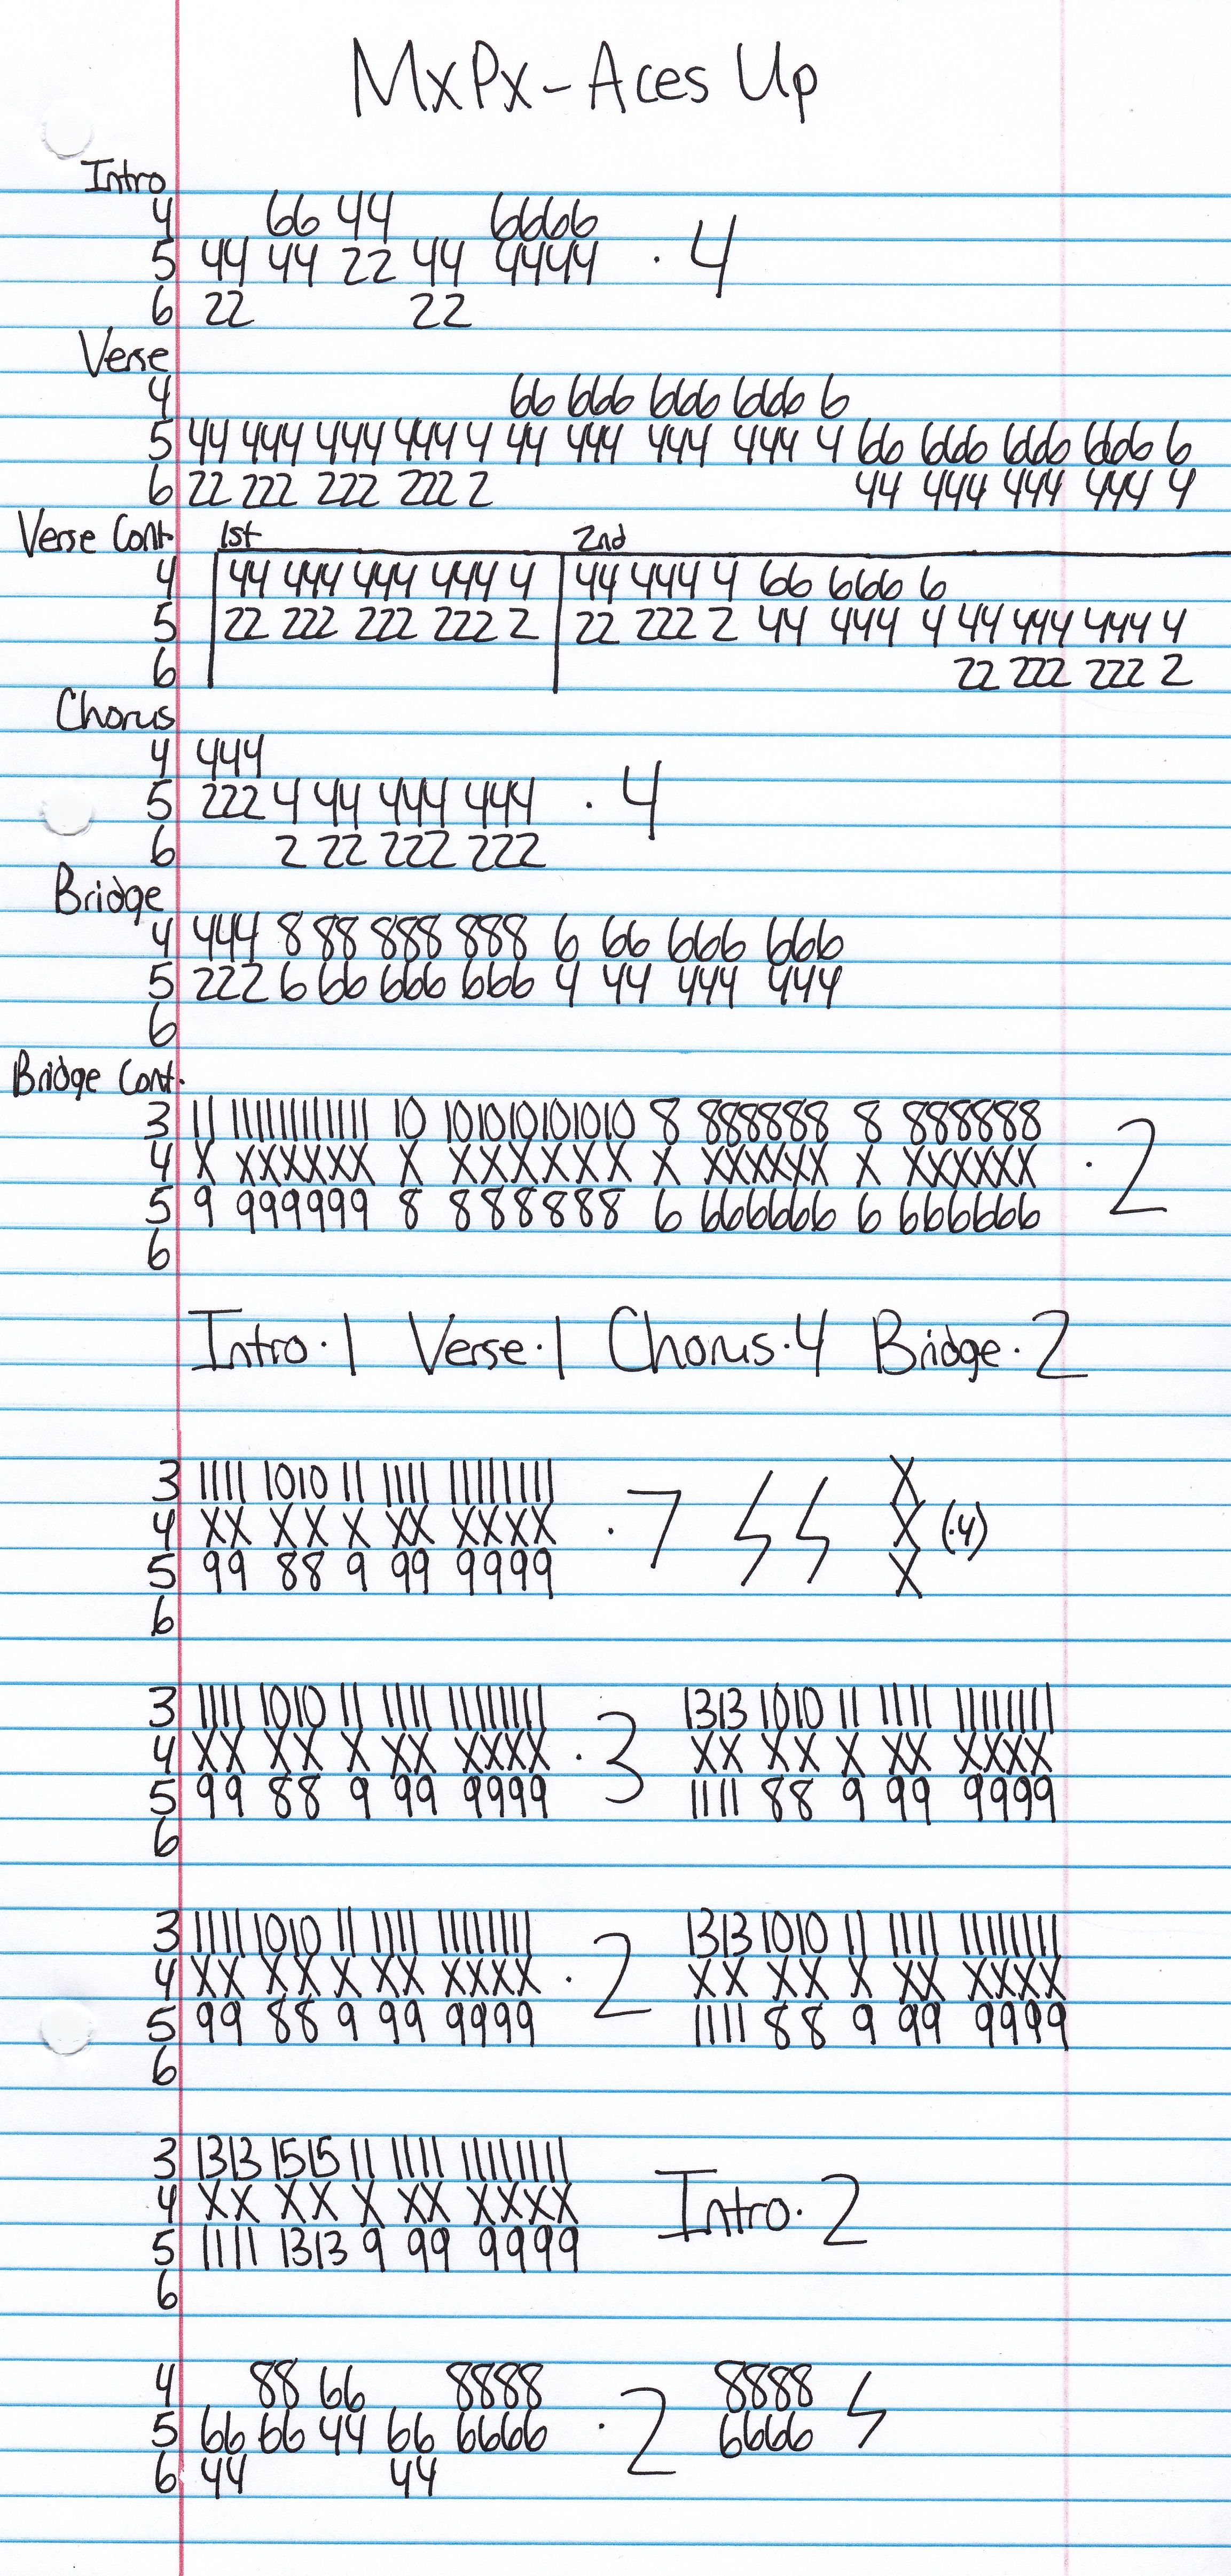 MxPx - Aces Up
Intro
4 66 44 6666
5 44 44 22 44 4444 · 4
6 22 22
Verse
4 66 666 666 666 6
5 44 444 444 444 4 44 444 444 444 4 66 666 666 666 6
6 22 222 222 222 2 44 444 444 444 4
Verse Cont. 1st 2nd
4 44 444 444 444 4 44 444 4 66 666 6
5 22 222 222 222 2 22 222 2 44 444 4 44 444 444 4
6 22 222 222 2
Chorus
4 444
5 222 4 44 444 444 · 4
6 2 22 222 222
Bridge
4 444 8 88 888 888 6 66 666 666
5 222 6 66 666 666 4 44 444 444
6
Bridge Cont.
3 11 111111111111 10 101010101010 8 888888 8 888888
4 X XXXXXX X XXXXXX X XXXXXX X XXXXXX · 2
5 9 999999 8 888888 6 666666 6 666666
6
Intro · 1 Verse · 1 Chorus · 4 Bridge · 2
3 1111 1010 11 1111 11111111 X
4 XX XX X XX XXXX · 7 X (·4)
5 99 88 9 99 9999 X
6
3 1111 1010 11 1111 11111111 1313 1010 11 1111 11111111
4 XX XX X XX XXXX · 3 XX XX X XX XXXX
5 99 88 9 99 9999 1111 88 9 99 9999
6
3 1111 1010 11 1111 11111111 1313 1010 11 1111 11111111
4 XX XX X XX XXXX · 2 XX XX X XX XXXX
5 99 88 9 99 9999 1111 88 9 99 9999
6
3 1313 1515 11 1111 11111111
4 XX XX X XX XXXX Intro · 2
5 1111 1313 9 99 9999
6
4 88 66 8888 8888
5 66 66 44 66 6666 · 2 6666
6 44 44